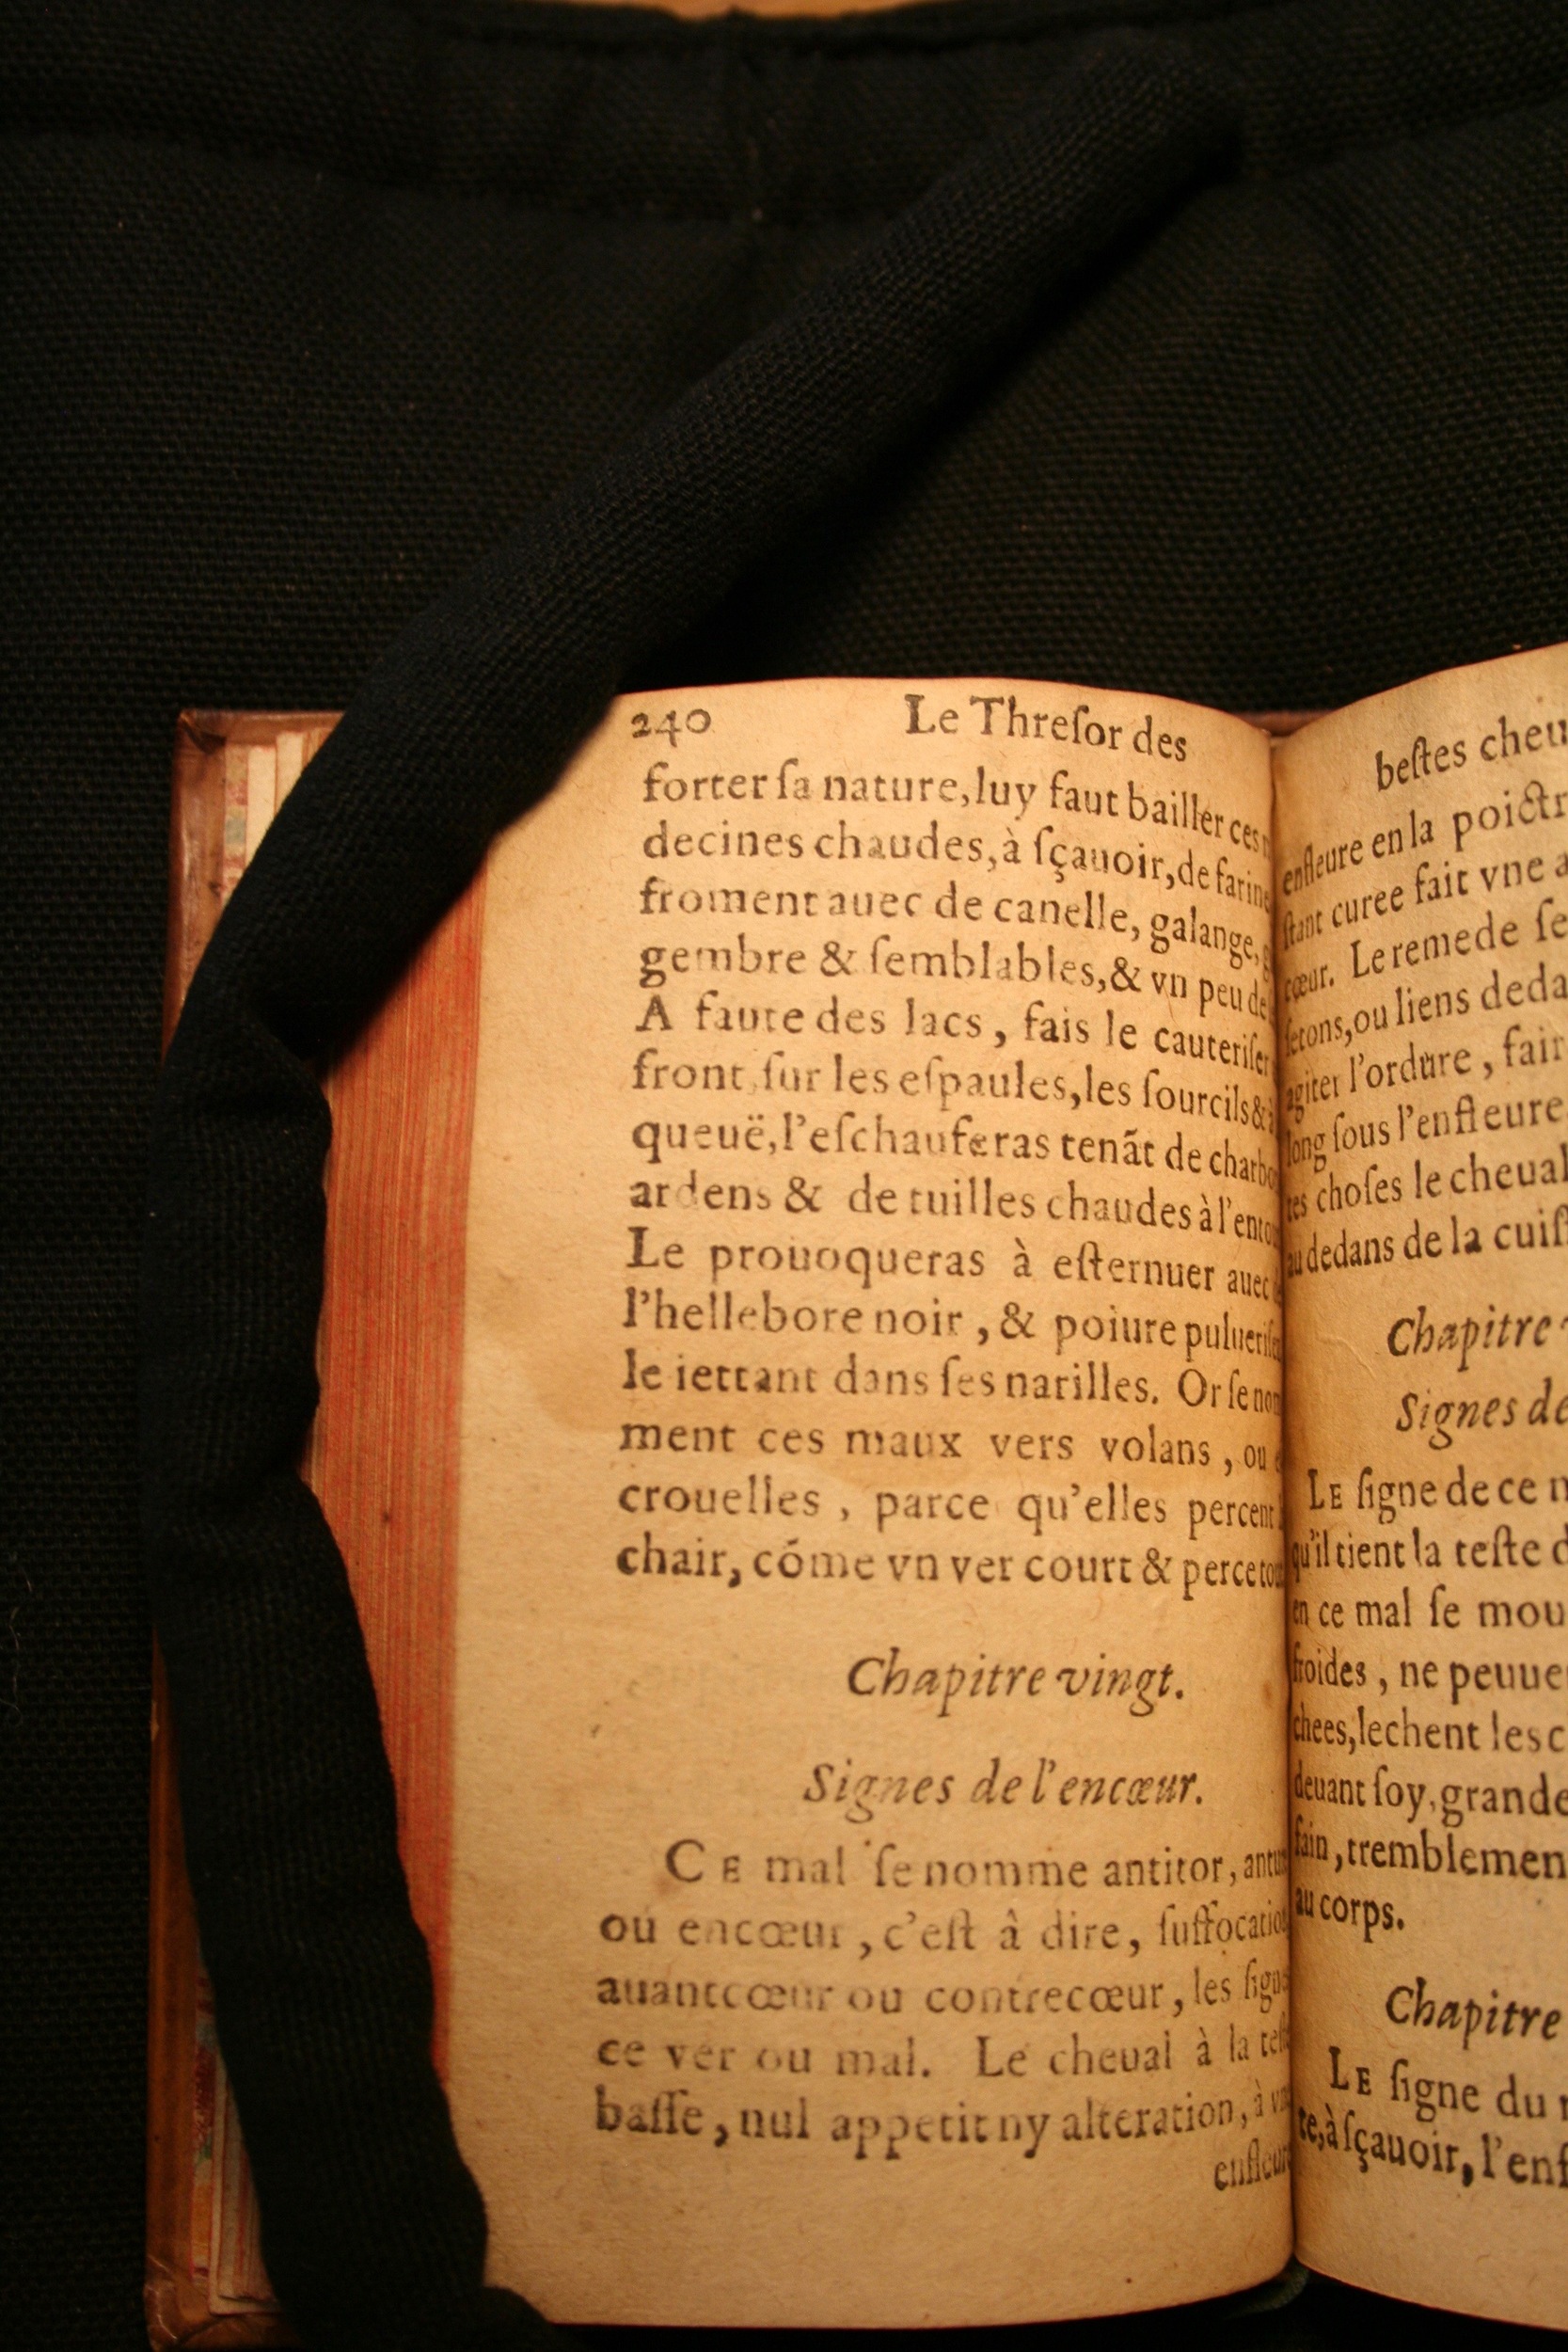 240 Le Threſor des
forter ſa nature, luy faut bailler ces
decines chaudes, à ſçauoir, de farine
froment auec de canelle, galange,
gembre & ſemblables, & vn peu de
A faute des lacs, fais le cauteriſer
front ſur les eſpaules, les ſourcils &
queuë, l'eſchauferas tenãt de
ardens & de tuilles chaudes à
Le prouoqueras à eſternuer auec
l'hellebore noir, & poiure
le iettant dans ſes narilles. Or ſe
ment ces maux vers volans, ou
crouelles, parce qu'elles percent
chair, cõme vn ver court & perce
Chapitre vingt.
Signes de l'encœur.
CE mal ſe nomme antitor,
ou encœur, c'eſt â dire,
auantcœur ou contrecœur, les
ce ver ou mal. Le cheual à la
baſſe, nul appetit ny alteration, à
beſtes
enfleure en la
curee fait vne
cœur. Le remede
ſetons, ou liens
agiter l'ordure,
long ſous l'enfleure
choſes le cheual
au dedans de la
Chapitre
Signes de
LE ſigne de ce
qu'il tient la teſte
en ce mal ſe
froides, ne
chees, lechent les
deuant ſoy, grande
fain,
au corps.
Chapitre
LE ſigne du
te, à ſçauoir,